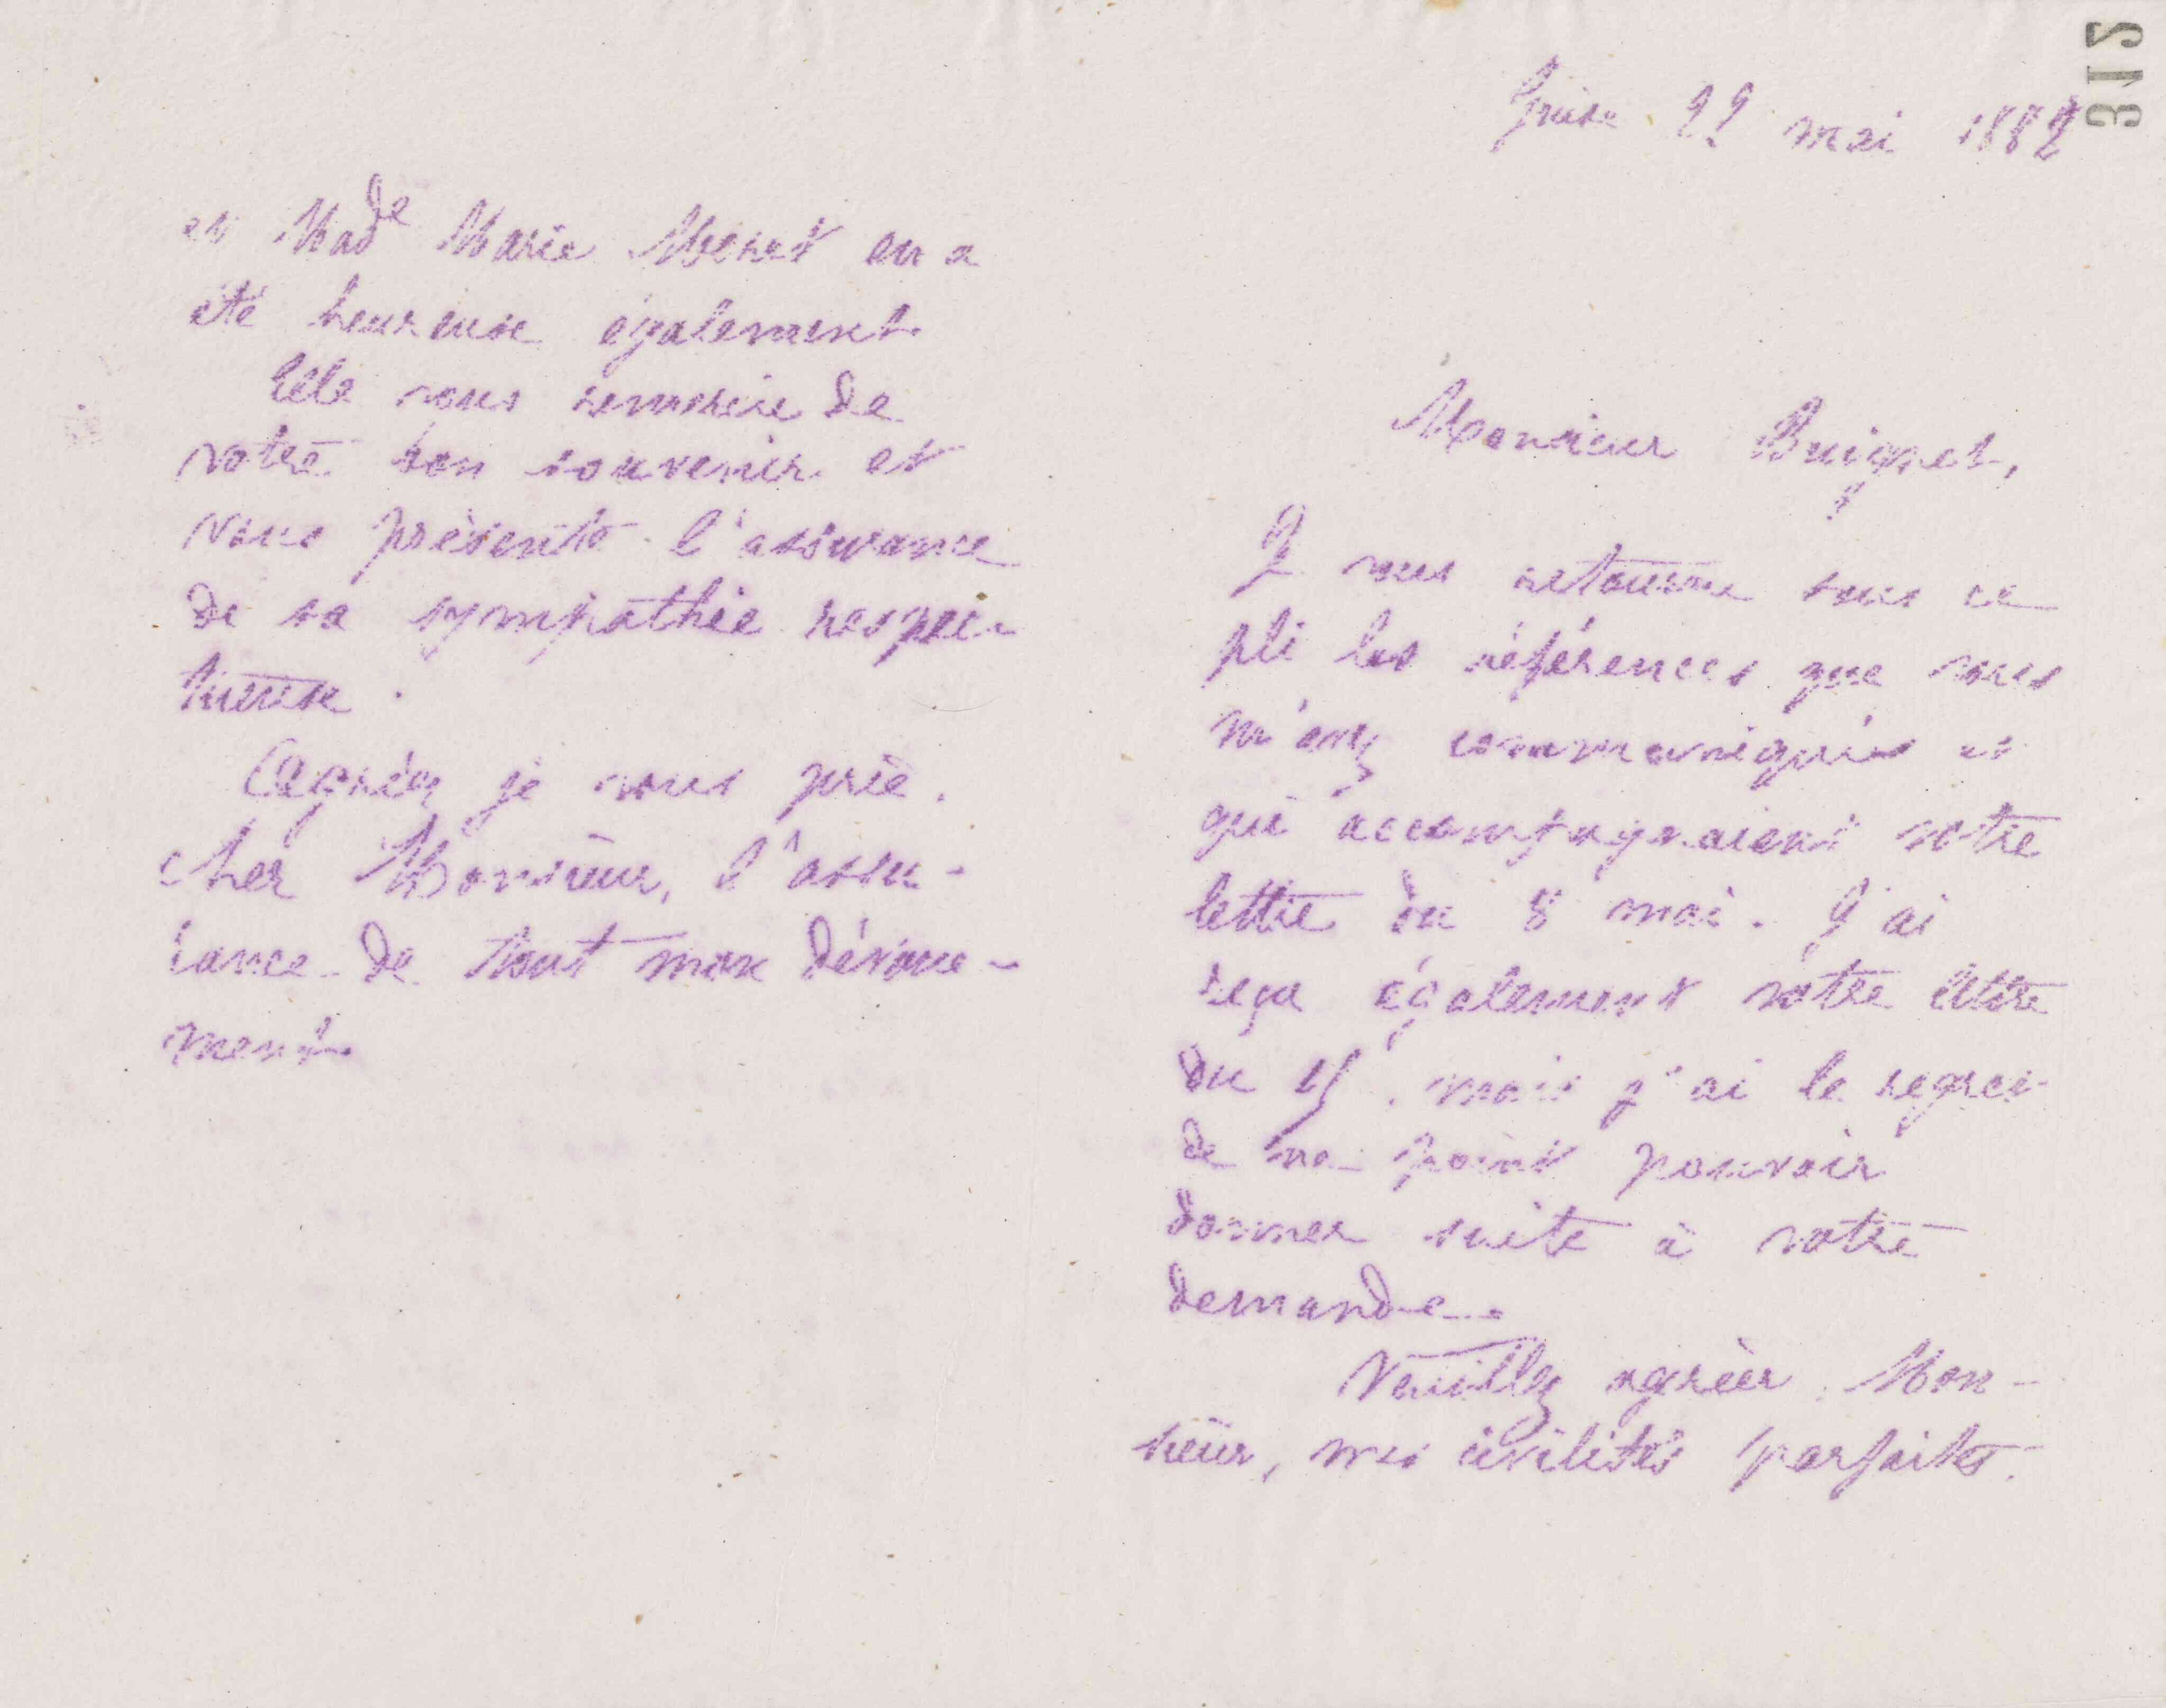 et Mad^e Marie Moret en a
été heureuse également.
Elle vous remercie de
votre bon souvenir et
vous présente l'assurance
de sa sympathie respec-
tueuse.
Agréez, je vous prie,
cher Monsieur, l'assu-
rance de tout mon dévoue-
ment.
312
Guise 22 mai 1882
Monsieur Buignet,
Je vous retourne sous ce
pli les références que vous
m'avez communiquées et
qui accompagnaient votre
lettre du 8 mai. J'ai
reçu également votre lettre
du 15, mais j'ai le regret
de ne point pouvoir
donner suite à votre
demande.
Veuillez agréer, Mon-
sieur, mes civilités parfaites.